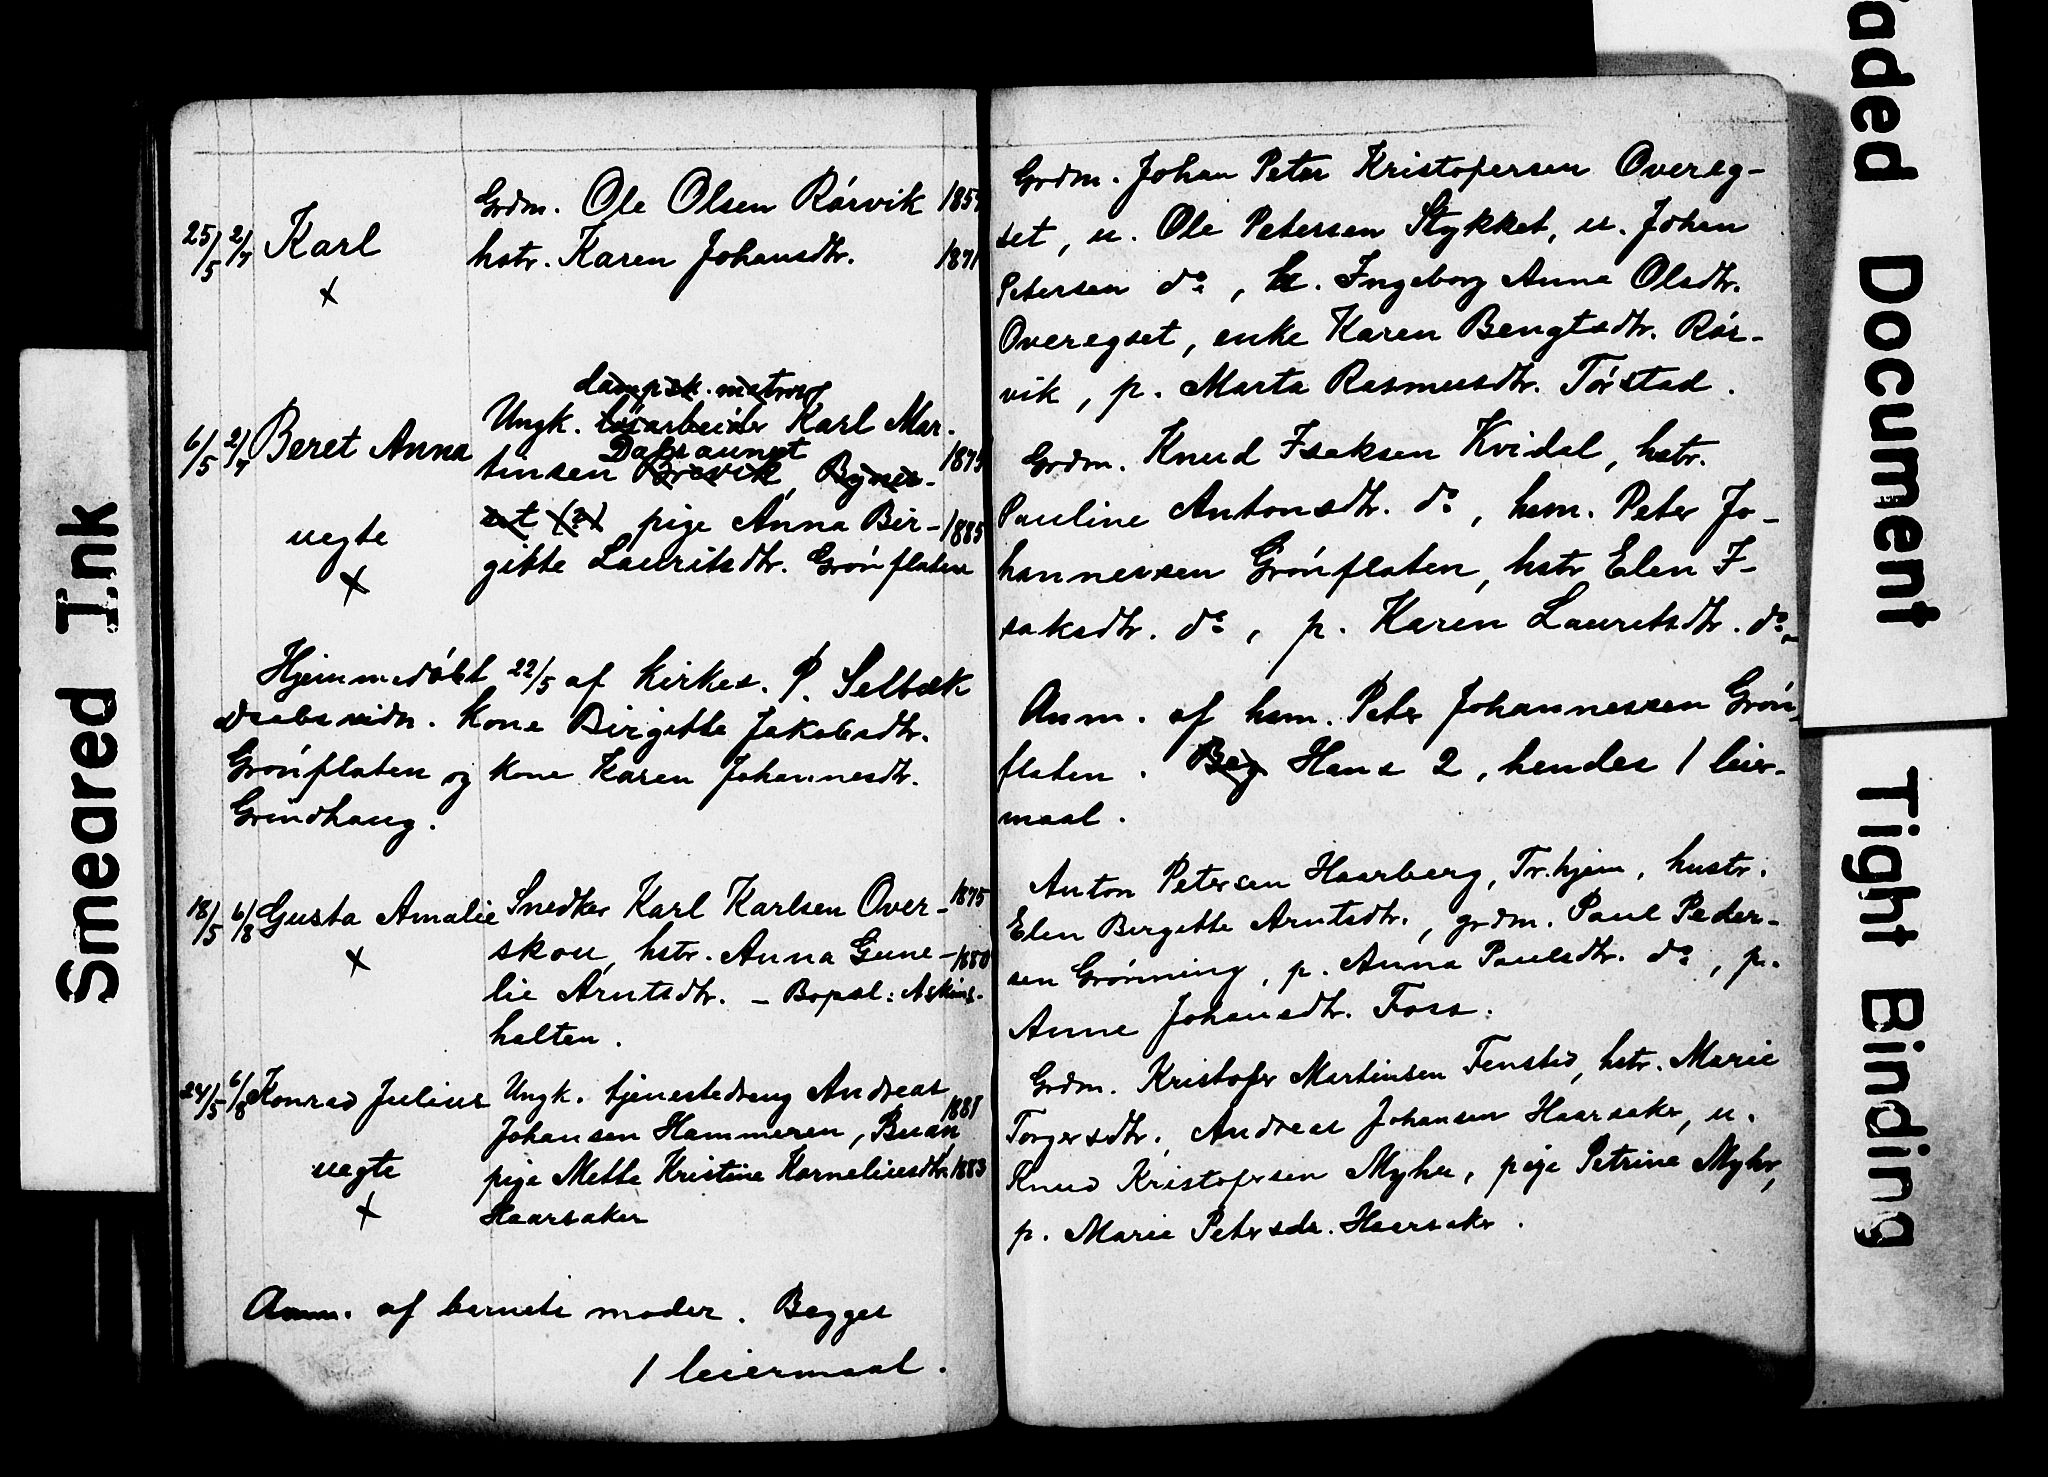 Grdm. Ole Olsen Rórvik 1857
25/5 2/7 Karl
hstr. Karen Johansdtr. 1871
x
dampsk. matros
Ungk. løsarbeider Karl Mar-
6/5 2/7 Beret Anna
Dalsaunet
tinsen Brevik, Bynes- 1875
et (?) pige Anna Bir- 1885
uegte
gitte Lauritsdtr. Grónflaten
x
Hjemmedóbt 22/5 af kirkes. P. Selbæk
Kone Birgitte Jakobsdtr.
Grónflaten og kone Karen Johannesdtr.
Grindhaug.
18/5 6/8 Gusta Amalie Snedker Karl Karlsen Over- 1875
x
skou, hstr. Anna Gune- 1880
lie Arntsdtr. - Bopæl: Askins-
halten.
24/5 6/8 Konrad Julius Ungk. tjenestedreng Andreas
Johansen Hammeren, Buan 1881
uegte
pige Mette Kristine Korneliusdtr. 1883
x
Haarsaker
Anm. af barnets moder. Begges
1 leiermaal.
Grdm. Johan Peter Kristofersen Overeg-
set, u. Ole Petersen Stykket, u. Johan
Petersen do, k. Ingeborg Anna Olsdtr.
Overegset, enke Karen Bengtsdtr. Rór-
vik, p. Marta Rasmusdtr. Tórstad.
Grdm. Knud Isaksen Kvidal, hstr.
Pauline Antonsdtr. do, hsm. Peter Jo-
hannessen Grónflaten, hstr Elen I-
saksdtr. do, p. Karen Lauritsdtr. do.
Anm. af hsm. Peter Johannessen Grón-
flaten. Beg Hans 2, hendes 1 leier-
maal.
Anton Petersen Haarberg, Tr.hjem, hustr.
Elen Birgitte Arntsdtr., grdm. Paul Peder-
sen Grónning, p. Anna Paulsdtr. do, p.
Anne Johansdtr. Foss.
Grdm. Kristofer Martinsen Fenstad, hstr. Marie
Torgersdtr., Andreas Johansen Haarsaker, u.
Knud Kristofersen Myhr, pige Petrine Myhr,
p. Marie Petersdr. Haarsaker.
Smeared Ink
Faded Document
Tight Binding